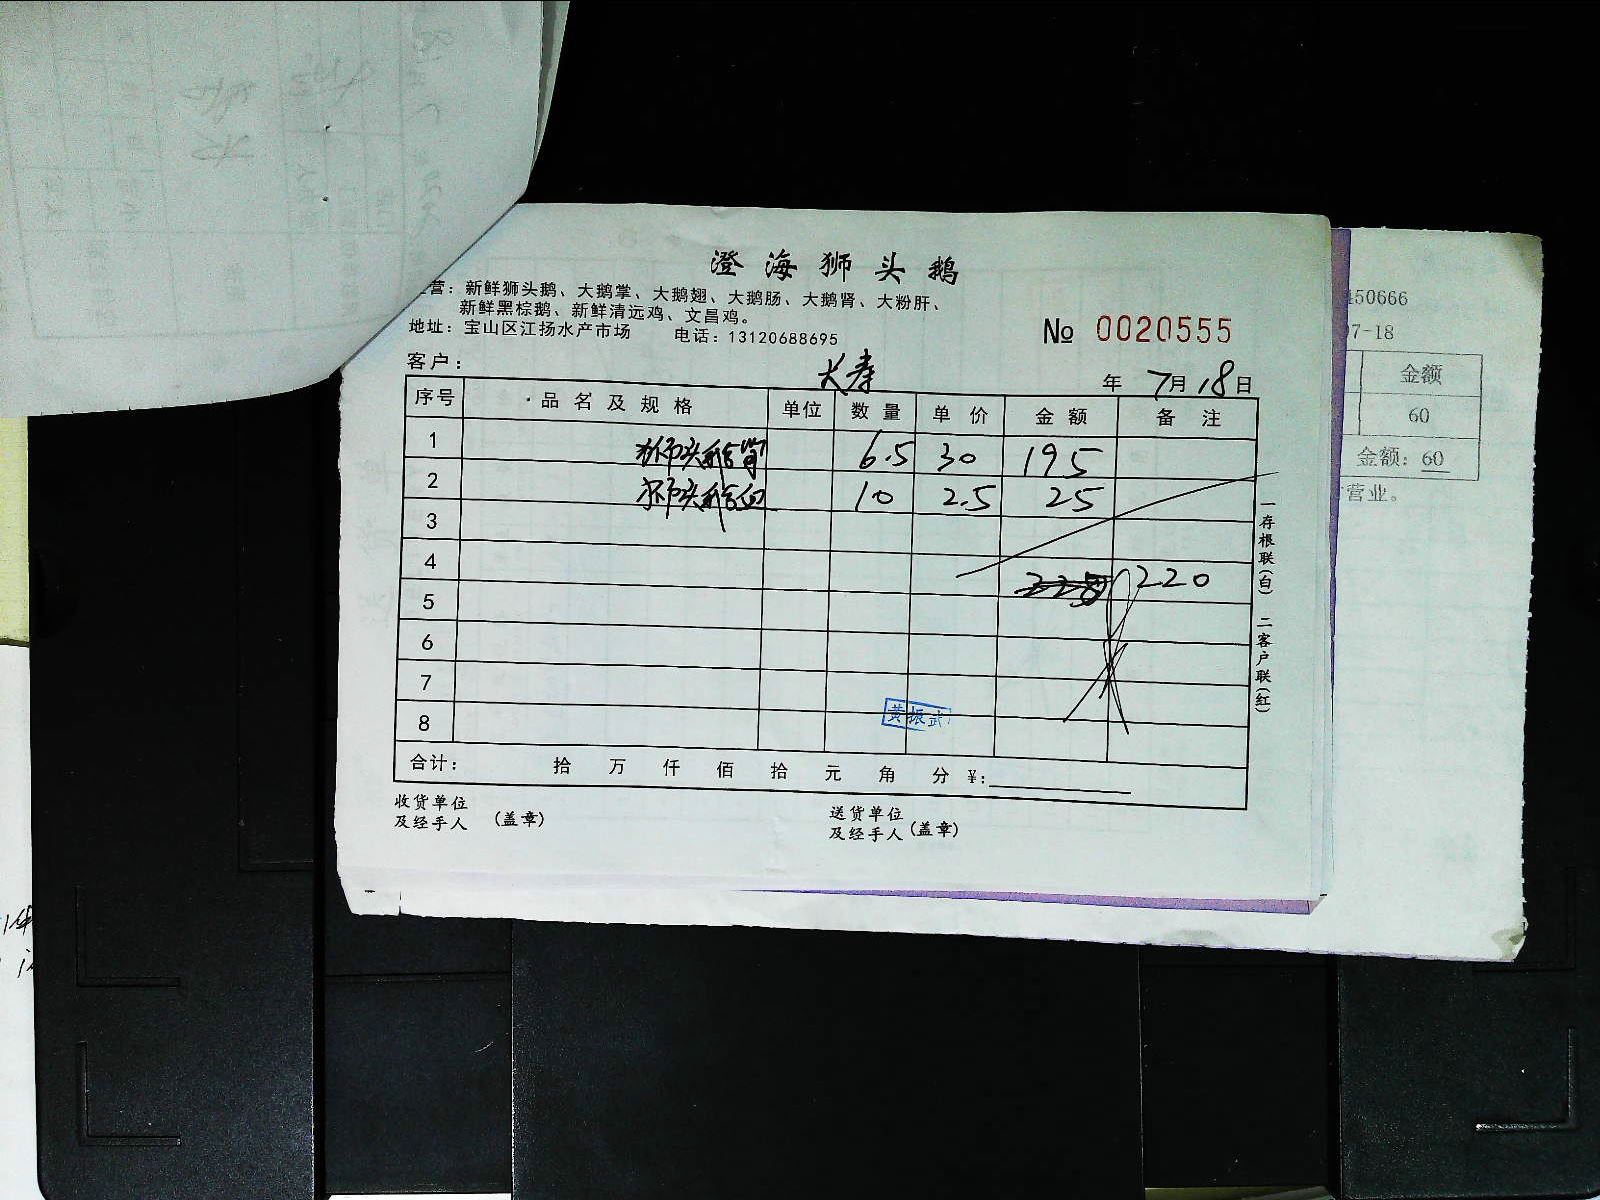 澄海狮头鹅
营：新鲜狮头鹅、大鹅掌、大鹅翅、大鹅肠、大鹅肾、大粉肝、
新鲜黑棕鹅、新鲜清远鸡、文昌鸡。
地址：宝山区江扬水产市场 电话：13120688695
№ 0020555
客户： 大寿 年 7月18日
序号 品名及规格 单位 数量 单价 金额 备注
1 狮头 6.5 30 195
2 狮头 10 2.5 25
3
4 220
5
6
7
8
黄振武
合计： 拾 万 仟 佰 拾 元 角 分 ¥：
收货单位
及经手人 （盖章）
送货单位
及经手人（盖章）
一存根联（白） 二客户联（红）
450666
07-18
金额
60
金额：60
营业。